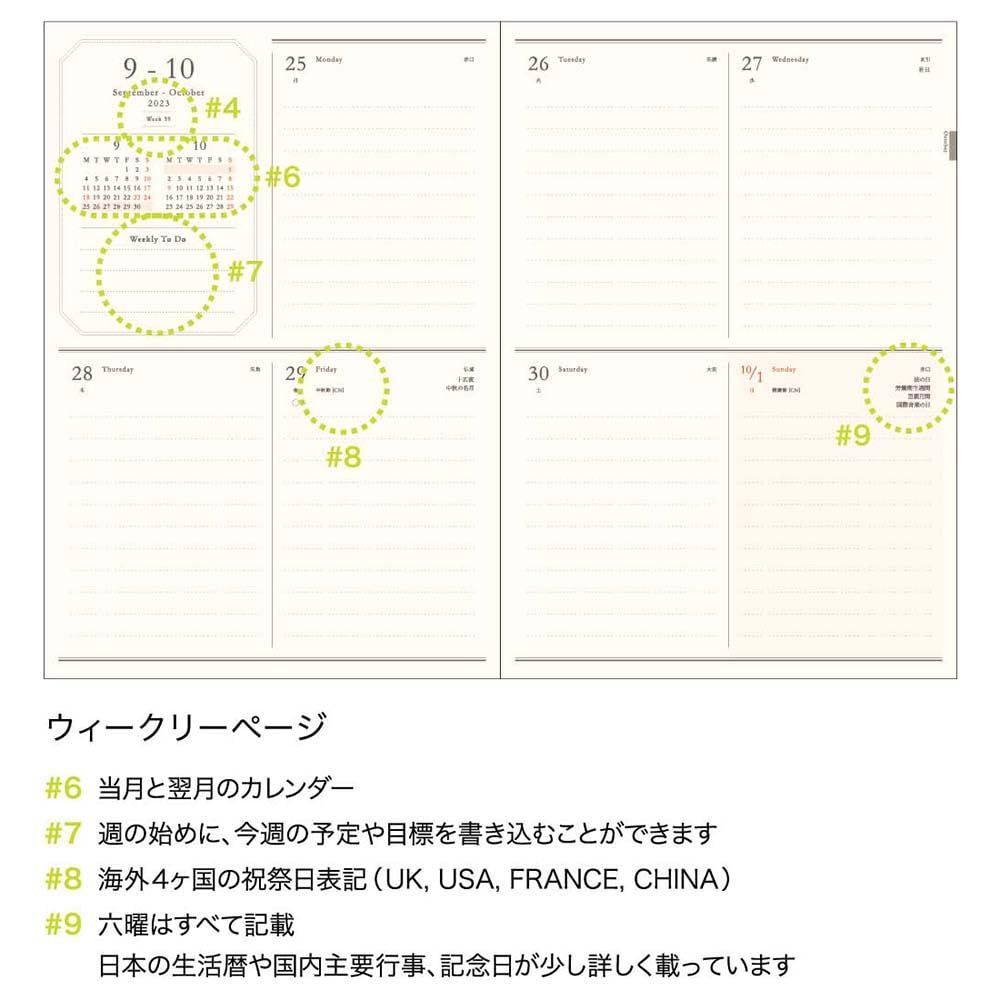 9 - 10
September - October
2023
Week 39
#4
9
M T W T F S S
1 2 3
4 5 6 7 8 9 10
11 12 13 14 15 16 17
18 19 20 21 22 23 24
25 26 27 28 29 30
10
M T W T F S S
1
2 3 4 5 6 7 8
9 10 11 12 13 14 15
16 17 18 19 20 21 22
23 24 25 26 27 28 29
#6
Weekly To Do
#7
25 Monday 赤口
月
26 Tuesday 先勝
火
27 Wednesday 友引
水
October
28 Thursday 先負
木
29 Friday 仏滅
金 中秋節 [CN] 十五夜
中秋の名月
#8
30 Saturday 大安
土
10/1 Sunday 赤口
日 国慶節 [CN] 法の日
労働衛生週間
国際音楽の日
#9
ウィークリーページ
#6 当月と翌月のカレンダー
#7 週の始めに、今週の予定や目標を書き込むことができます
#8 海外4ヶ国の祝祭日表記（UK, USA, FRANCE, CHINA）
#9 六曜はすべて記載
日本の生活暦や国内主要行事、記念日が少し詳しく載っています